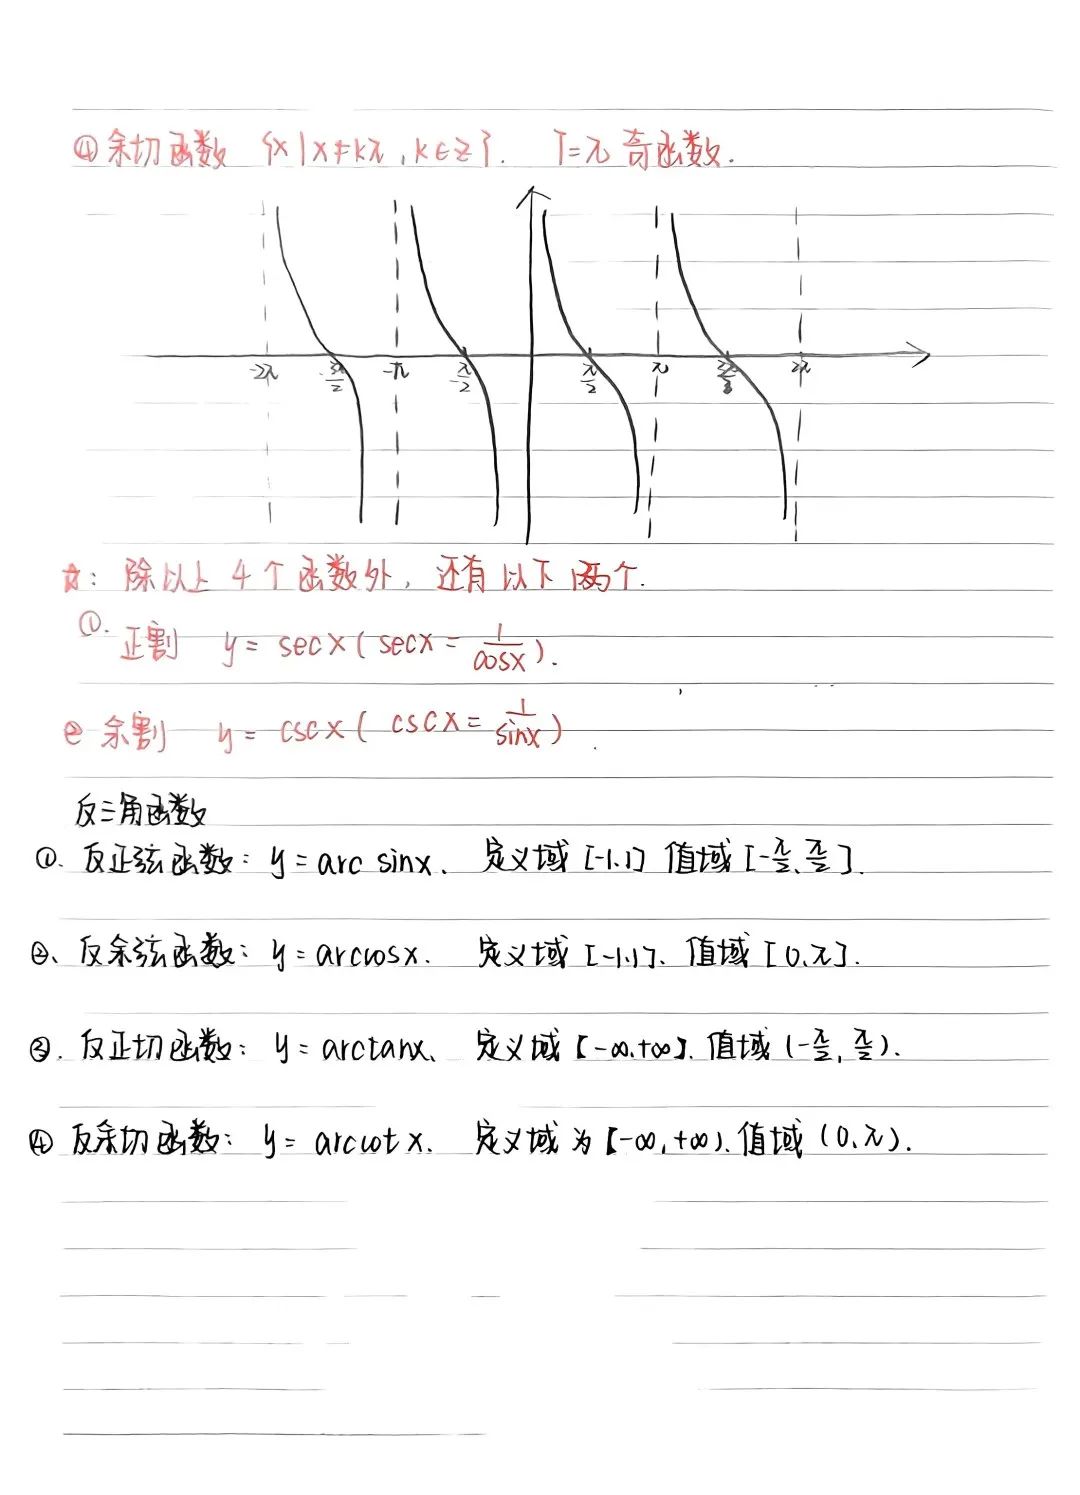 ④余切函数 {x|x≠kπ,k∈Z}. T=π 奇函数.
-2π -3π/2 -π -π/2 π/2 π 3π/2 2π
☆: 除以上4个函数外, 还有以下两个.
①. 正割 y = secx ( secx = 1/cosx ).
② 余割 y = cscx ( cscx = 1/sinx ).
反三角函数
①. 反正弦函数: y = arc sinx. 定义域 [-1,1] 值域 [-π/2, π/2].
②、反余弦函数: y = arccosx. 定义域 [-1,1]. 值域 [0,π].
③. 反正切函数: y = arctanx、 定义域 [-∞,+∞]. 值域 (-π/2, π/2).
④ 反余切函数: y = arccot x. 定义域为 [-∞,+∞). 值域 (0,π).